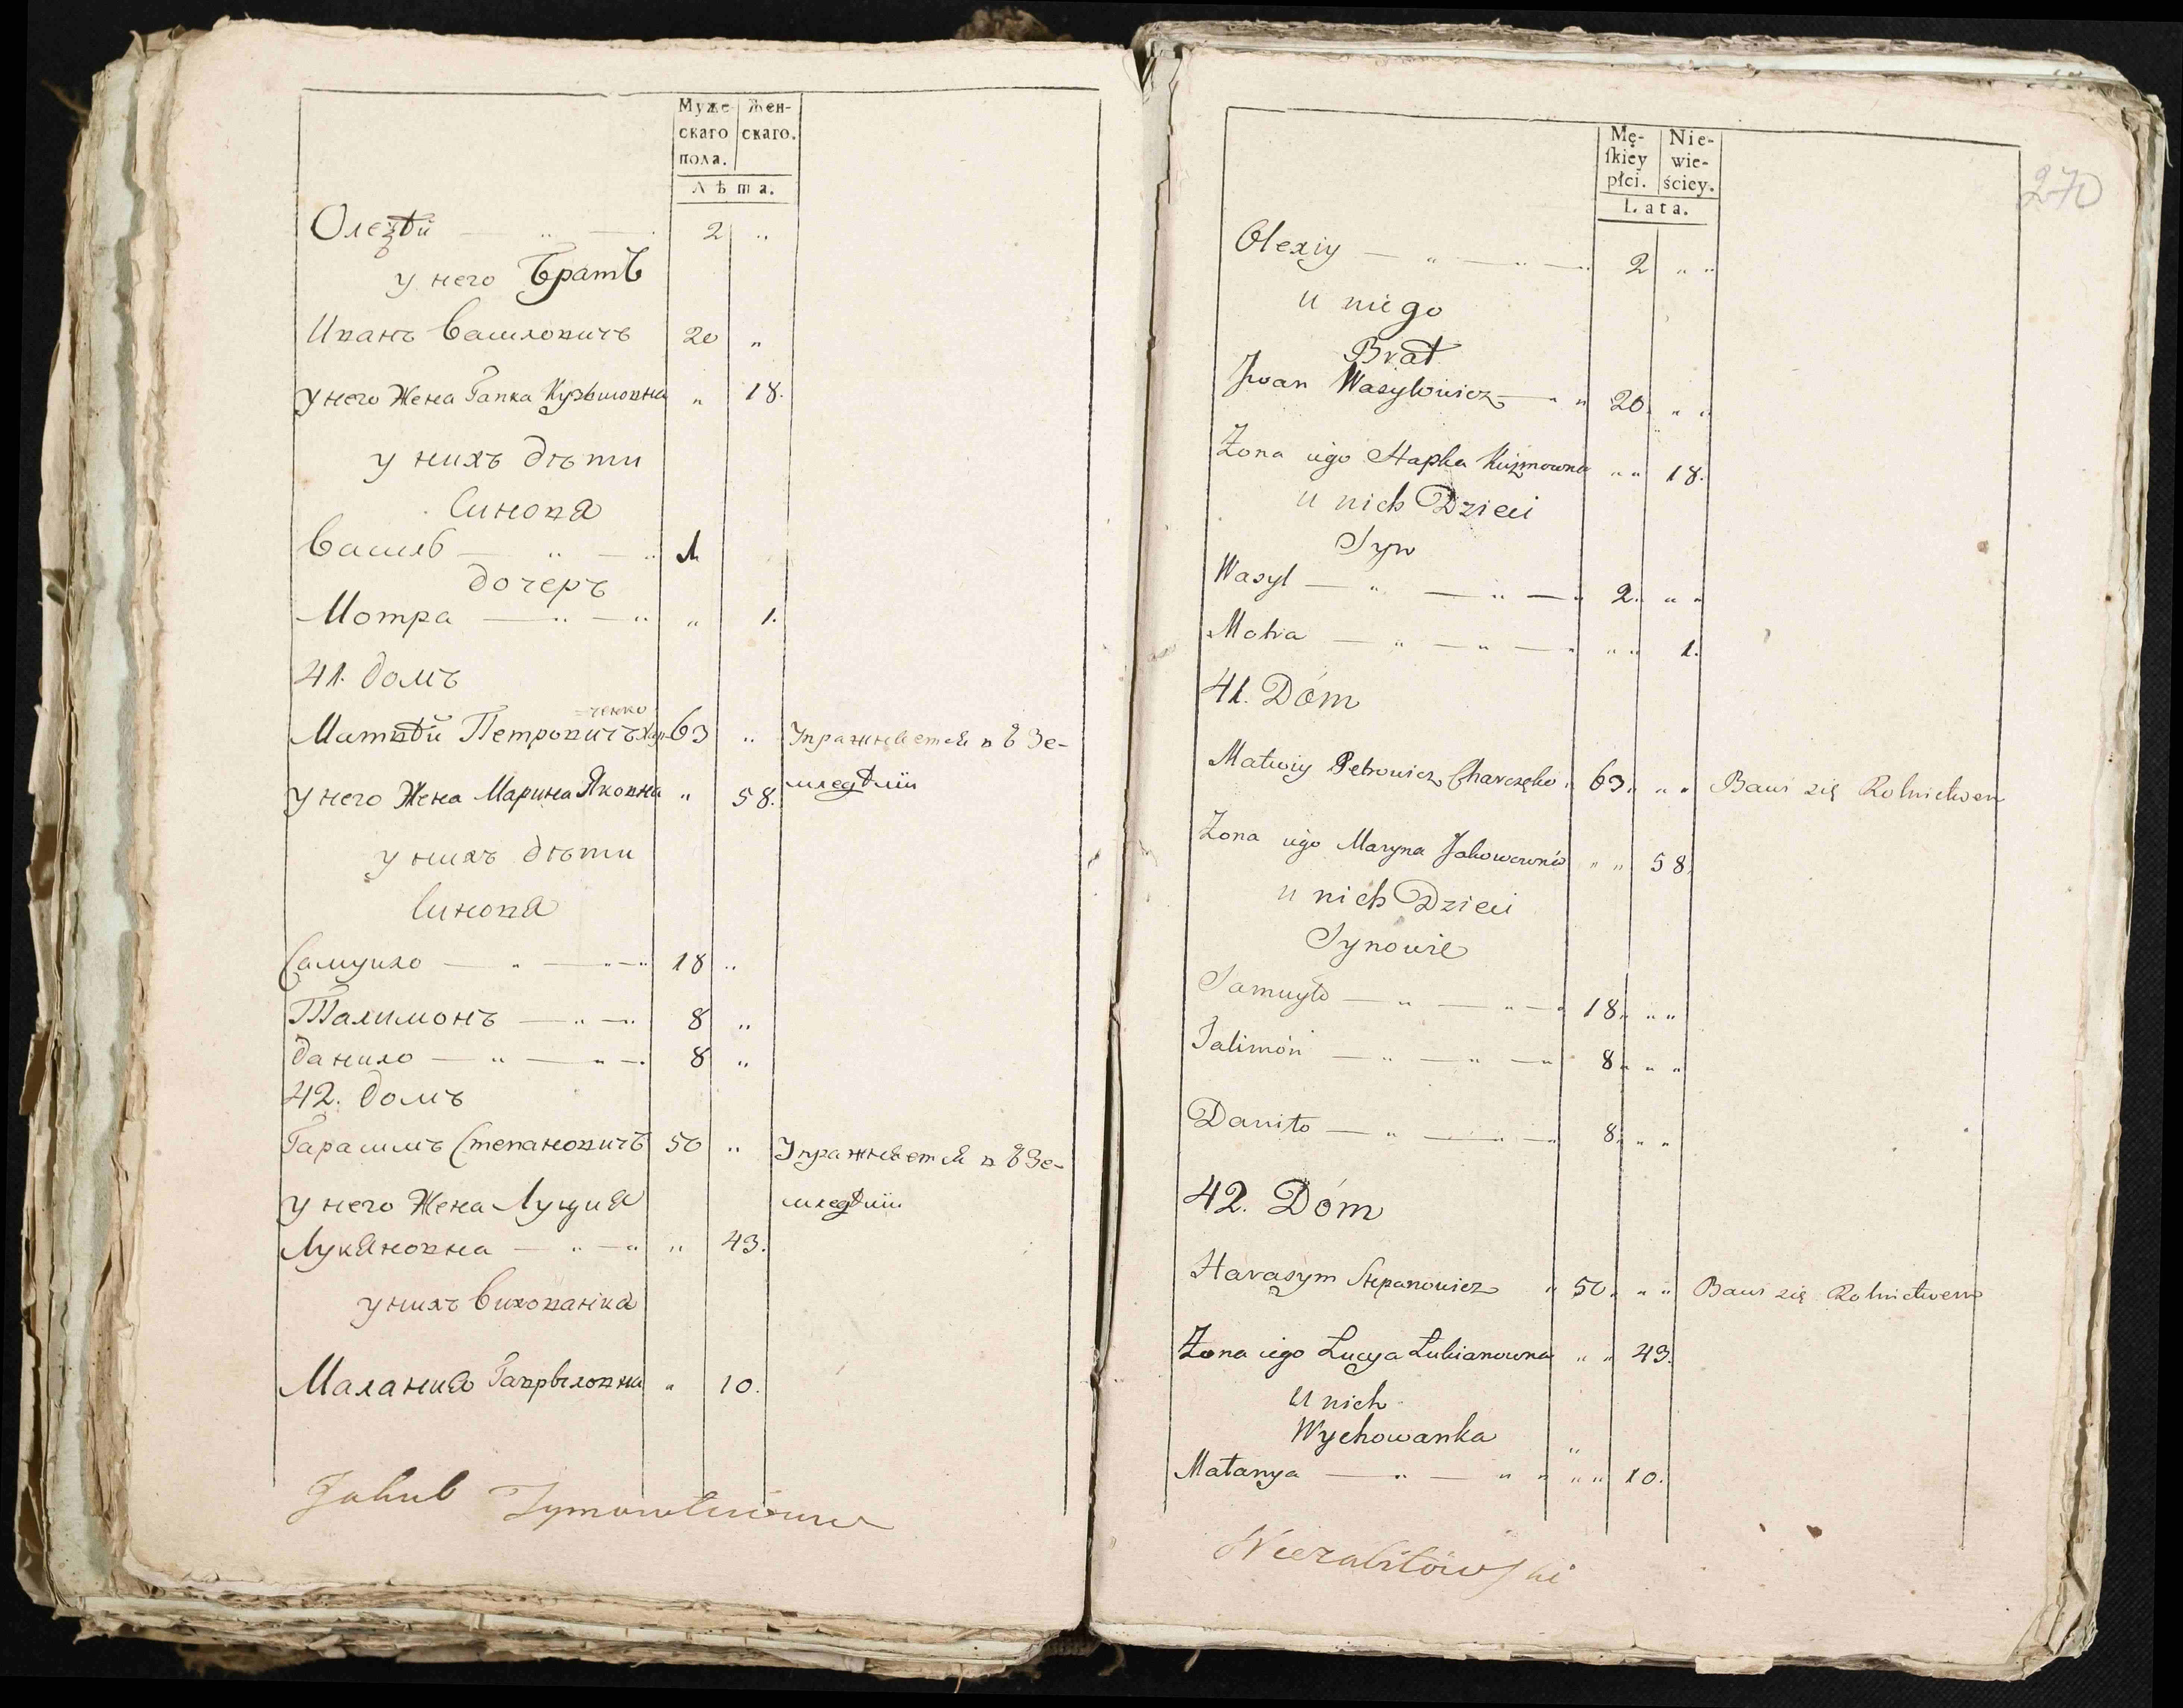 Муже- Жен-
скаго скаго.
пола.
Лѣта.
Олексѣй — „ — 2 „
у него Братъ
Иванъ Василовичъ 20 „
у него Жена Гапка Кузьмовна „ 18.
у нихъ дѣти
Синовя
Василь — „ — „ 1
дочеръ
Мотра — „ — „ „ 1.
41. домъ
-ченко
Матвѣй Петровичъ Хар- 63 „ Упражняется въ Зе-
у него Жена Марина Яковна „ 58. мледѣлїи
у нихъ дѣти
Синовя
Самуило — „ — „ — „ 18 „
Талимонъ — „ — 8 „
данило — „ — „ — 8 „
42. домъ
Гарасимъ Степановичъ 50 „ Упражняется въ Зе-
у него Жена Луция мледѣлїи
Лукяновна — „ — „ „ 43.
у нихъ Вихованка
Малания Гаврыловна „ 10.
Jakub
270
Mę- Nie-
ſkiéy wie-
płci. ściey.
Lata.
Olexiy — „ — „ — „ 2 „ „
u niego
Brat
Jwan Wasylowicz — „ „ 20. „ „
Żona iego Hapka Kuzmowna „ „ 18.
u nich Dzieci
Syn
Wasyl — „ — „ — „ 2. „ „
Motra — „ — „ — „ „ „ 1.
41. Dóm
Matwiy Petrowicz Charczęko „ 63. „ „ Bawi się Rolnictwem
Żona iego Maryna Jakowowna „ „ 58.
u nich Dzieci
Synowie
Samuyło — „ — „ — „ 18. „ „
Talimón — „ — „ — „ 8. „ „
Daniło — „ — „ — „ 8. „ „
42. Dóm
Harasym Stepanowicz „ 50. „ „ Bawi się Rolnictwem
Żona iego Łucya Łukianowna „ „ 43.
U nich
Wychowanka „
Małanya — „ — „ „ „ „ 10.
Wierzbitowski